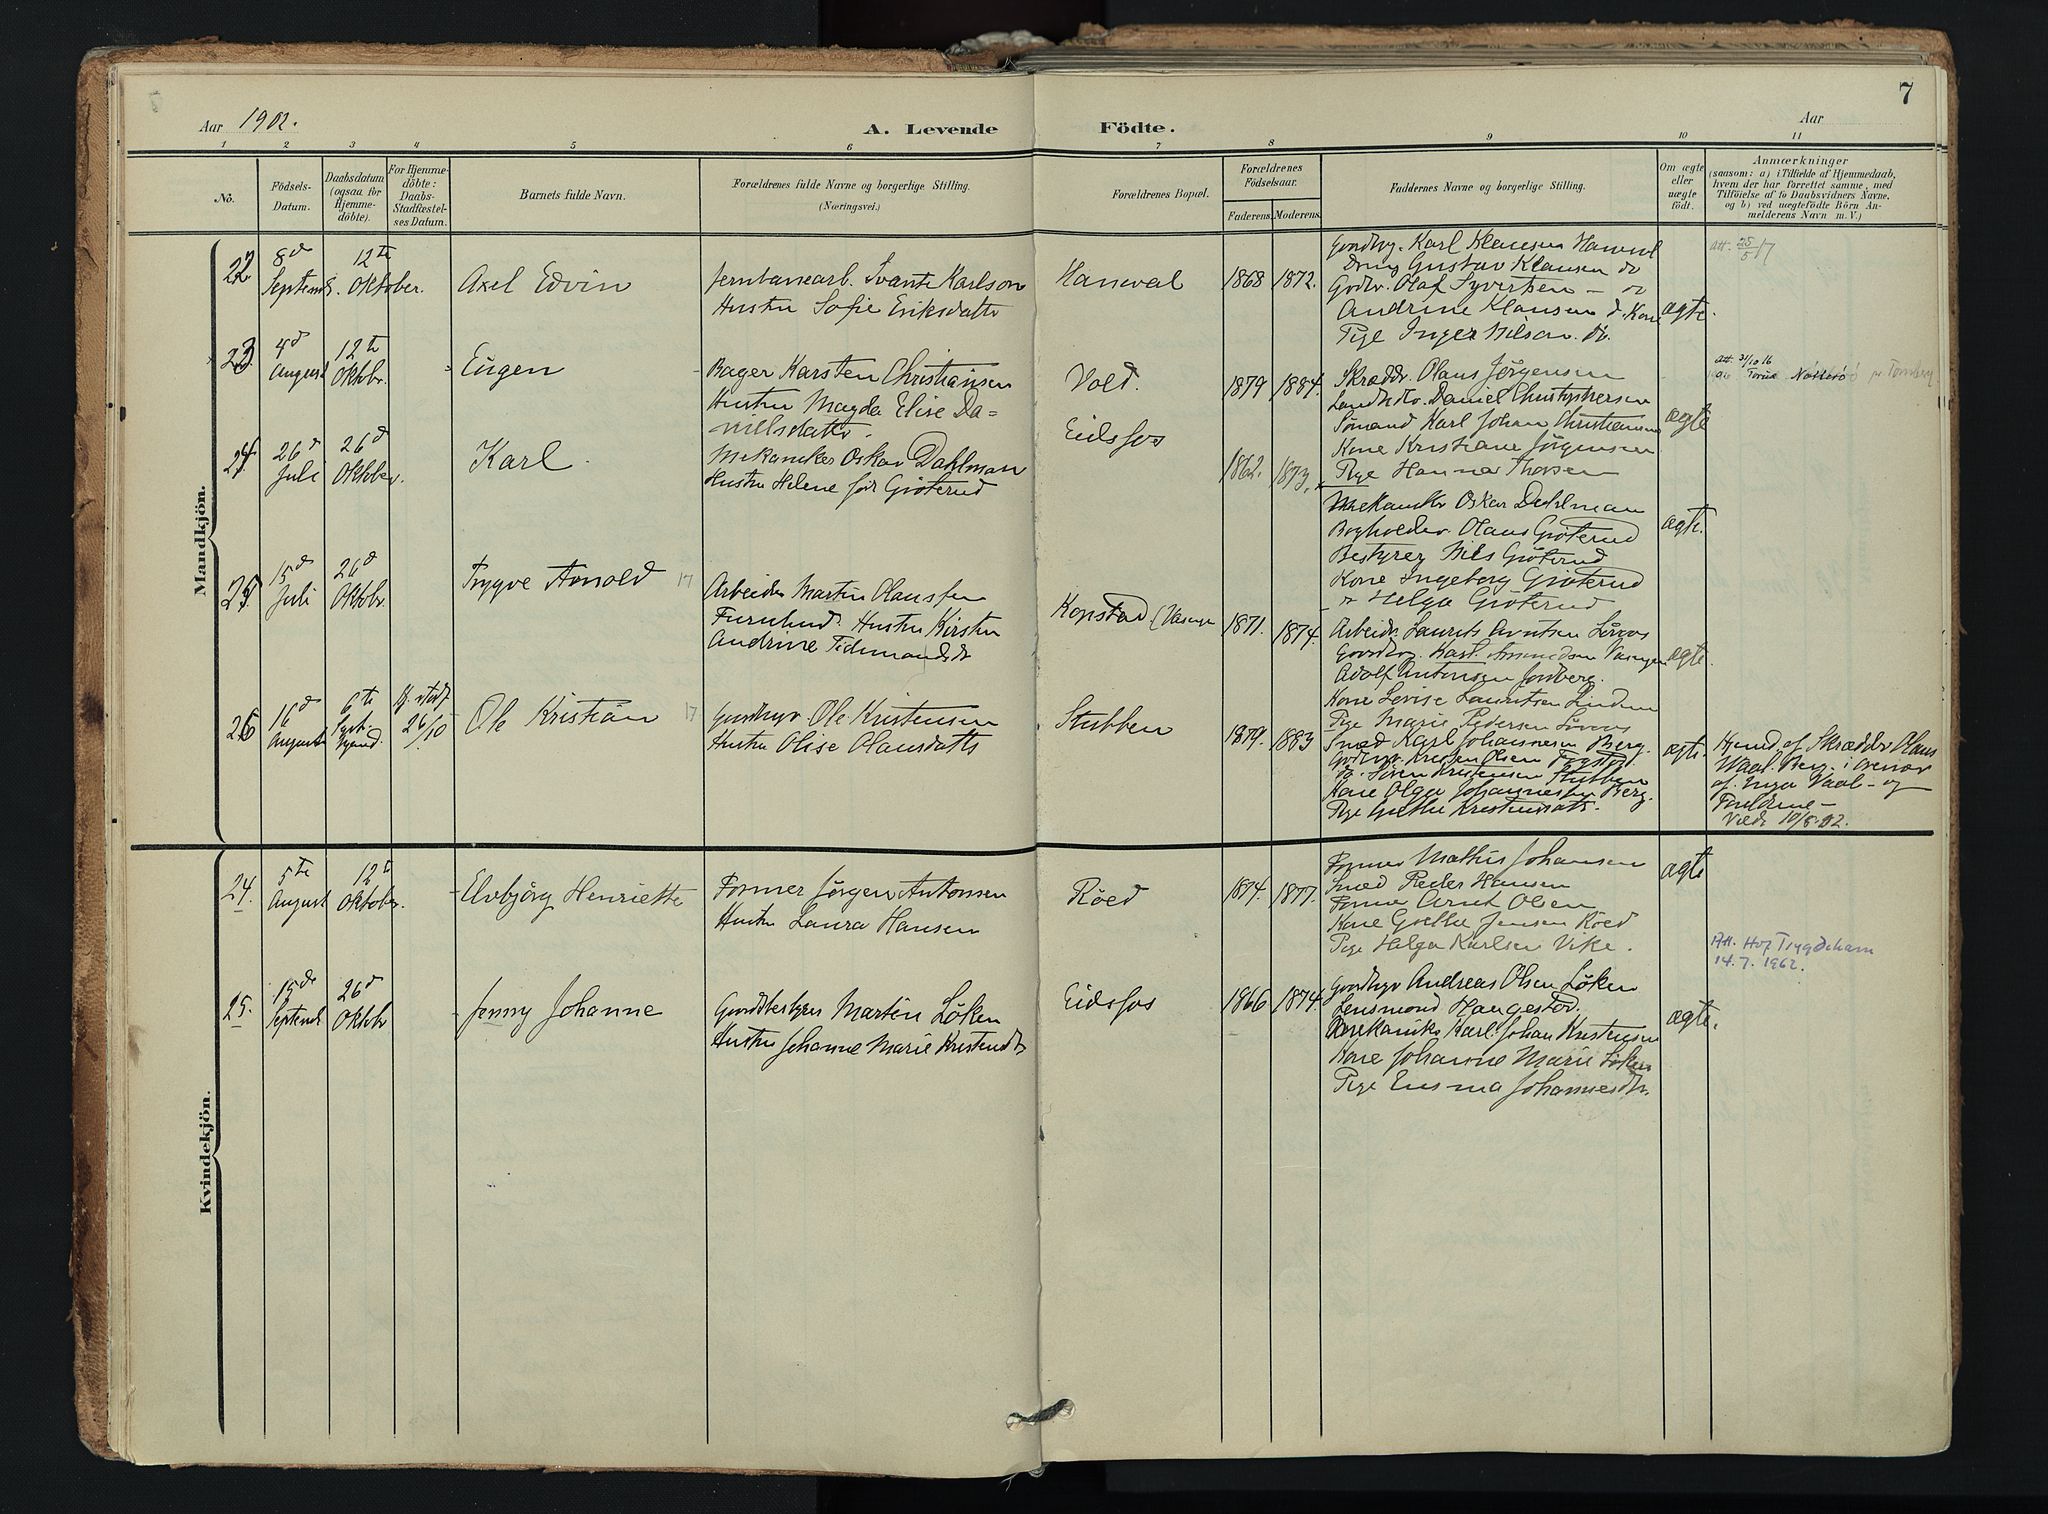 7
Aar 1902.
A. Levende Födte.
Aar
1 2 3 4 5 6 7 8 9 10 11
No.
Födsels-Datum.
Daabsdatum (ogsaa for Hjemme-döbte).
For Hjemme-döbte: Daabs-Stadfæstel-ses Datum.
Barnets fulde Navn.
Forældrenes fulde Navne og borgerlige Stilling.
(Næringsvei.)
Forældrenes Bopæl.
Forældrenes Födselsaar.
Faderens. Moderens.
Faddernes Navne og borgerlige Stilling.
Om ægte eller uægte födt.
Anmærkninger
(saasom: a) i Tilfælde af Hjemmedaab, hvem der har forrettet samme, med Tilföielse af to Daabsvidners Navne, og b) ved uægtefödte Börn An-melderens Navn m. V.)
Mandkjön.
22
8d Septemb.
12te Oktober.
Axel Edvin
Jernbanearb. Svante Karlson
Hustru Sofie Eriksdatter
Haneval
1868 1872.
Gaardbrg. Karl Klausen Haneval
Dreng Gustav Klausen do
Grdbr. Olaf Syvertsen - do
Andrine Klausen d. Kone
Pige Inger Nilsen. do.
ægte.
Att. 25/5 17
23
4d August
12te Oktbr.
Eugen
Bager Karsten Christiansen
Hustru Magda Elise Da-
nielsdatter.
Vold.
1879 1884.
Skrædr. Olaus Jörgensen
Landh. Daniel Christophersen
Sömand Karl Johan Christiansen
Kone Kristiane Jörgensen
Pige Hanna Thorsen
ægte
Att. 31/10 16
Nötterö pr Tönsberg.
24
26d Juli
26d Oktober.
Karl.
Mekaniker Oskar Dahlman
Hustru Helene föd Gröterud
Eidsfos
1862. 1873.
Mekaniker Oskar Dahlman
Bogholder Olaus Gröterud
Bestyrer Nils Gröterud
Kone Ingeborg Gröterud
" Helga Gröterud
ægte.
25
15d Juli
26d Oktbr.
Trygve Arnold 17
Arbeider Martin Olaussen
Furulund. Hustru Kirsten
Andrine Tidemandsdt
Kopstad (Vasenga
1871. 1874.
Arbeidr. Laurits Arntsen
Gaardbrg. Karl Amundsen Vasengen
Adolf Antonsen Jordberg.
Kone Lovise Lauritsen Linden
Pige Marie Pedersen
ægte.
26
16d August
6te Septbr hjemd.
Kj. stadf 26/10
Ole Kristian 17
Gaardbrgr Ole Kristensen
Hustru Olise Olausdatter
Stubben
1879. 1883
Smed Karl Johannesen Berg.
Grdbrgr. Kristen Olsen
do. Sören Kristensen Stubben
Kone Olga Johannesen Berg.
Pige Gusta Kristensdatr.
ægte.
Hjemd. af Skrædder Olaus
Waal. Berg. i overvær
af. Inga Vaal - og
Forældrene -
10/5.02.
Kvindekjön.
24.
5te August
12te Oktober.
Elvbjörg Henriette
Former Jörgen Antonsen
Hustru Laura Hansen
Röed
1874. 1877.
Former Mathis Johansen
Smed Peder Hansen
Former Arnt Olsen
Kone Grethe Jensen Röed
Pige Helga Karlsen Vike.
ægte
Att. Hof Trygdekam
14.7.1962.
25.
15de Septemb
26d Oktbr
Jenny Johanne
Gaardbestyrer Martin Löken
Hustru Johanne Marie Kristensdtr
Eidsfos
1866 1874.
Gaardbrgr Andreas Olsen Löken
Lensmand Haugestad.
Mekaniker Karl Johan Kristensen
Kone Johanne Marie Löken
Pige Emma Johannesdtr.
ægte.